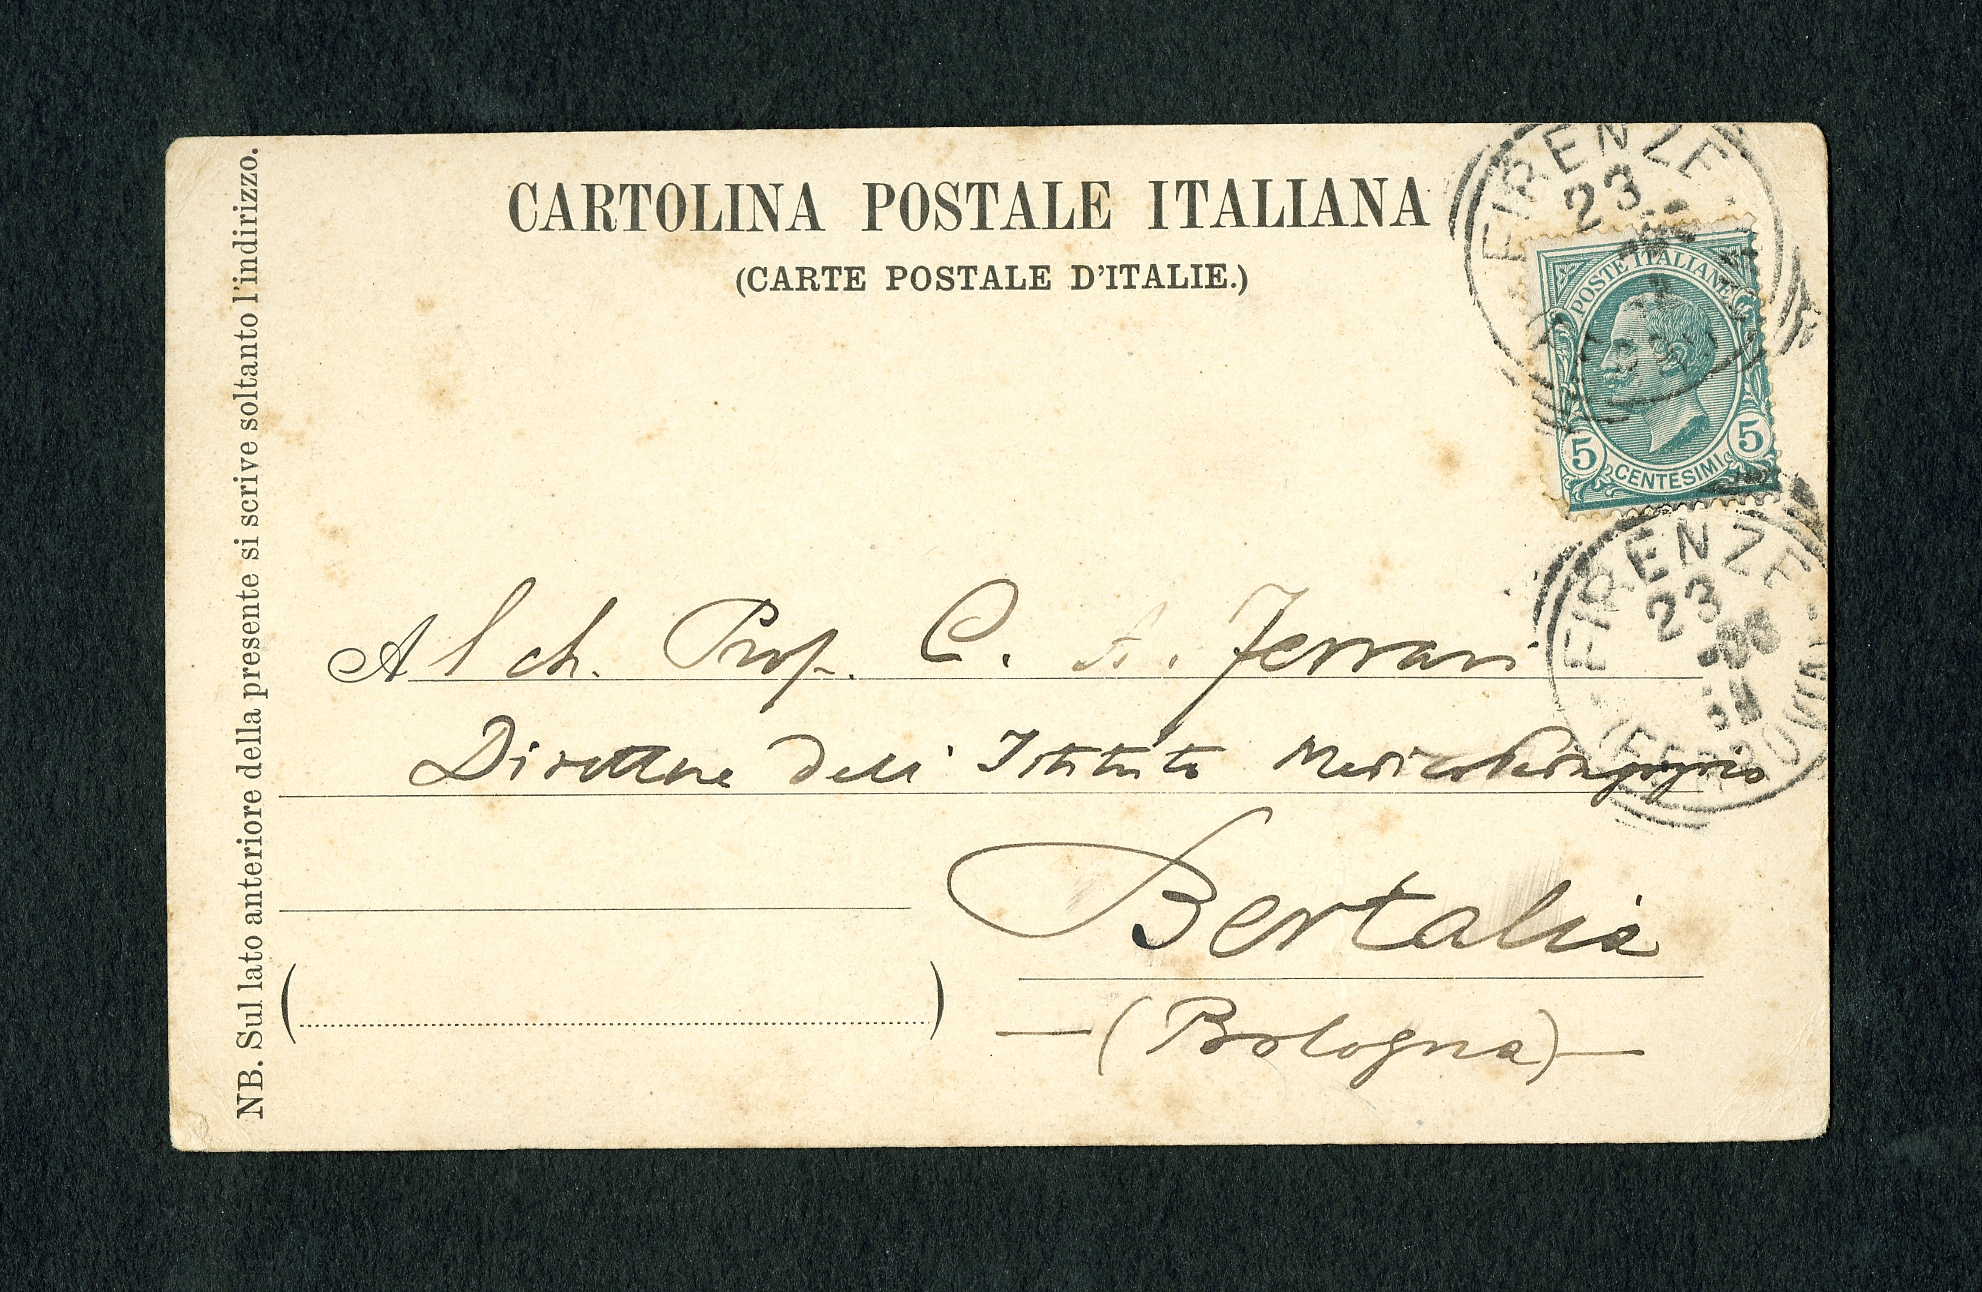 CARTOLINA POSTALE ITALIANA
(CARTE POSTALE D'ITALIE.)
NB. Sul lato anteriore della presente si scrive soltanto l'indirizzo.
FIRENZE
23
POSTE ITALIANE
5 5
CENTESIMI
FIRENZE
23
(FERROVIA)
Al ch. Prof. C. A. Ferrari
Direttore dell' Istituto Medicopedagogico
Bertalia
(Bologna)